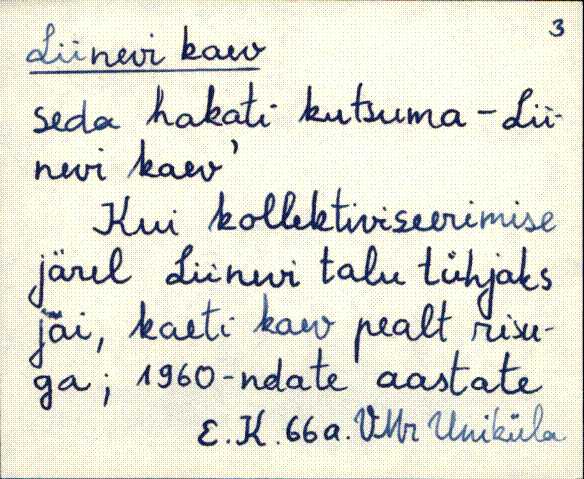 3
Liinevi kaev
seda hakati kutsuma - Lii-
nevi kaev'
Kui kollektiviseerimise
järel Liinevi talu tühjaks
jäi, kaeti kaev pealt risu-
ga; 1960-ndate aastate
E.K. 66a. VMr Uniküla